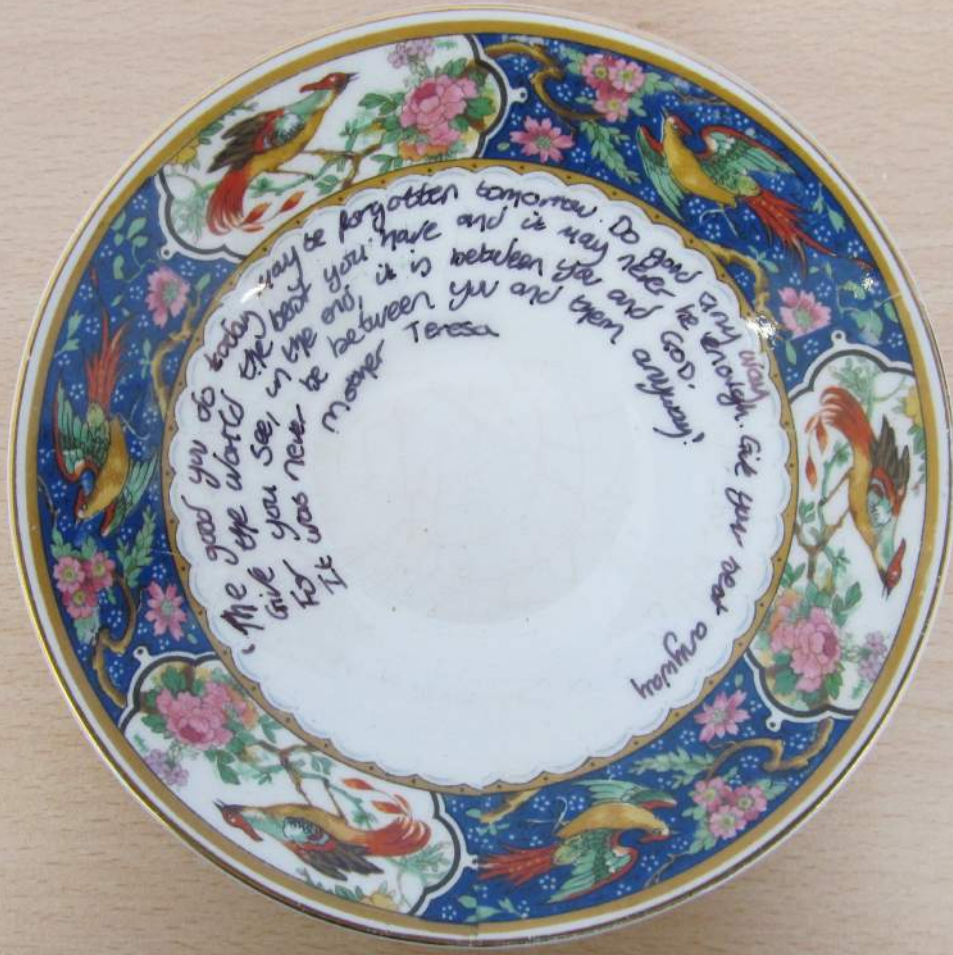 'The good you do today may be forgotten tomorrow. Do good any way
Give the world the best you have and it may never be enough. Give your best anyway
For you see, in the end, it is between you and GOD,
It was never be between you and them anyway'
Mother Teresa